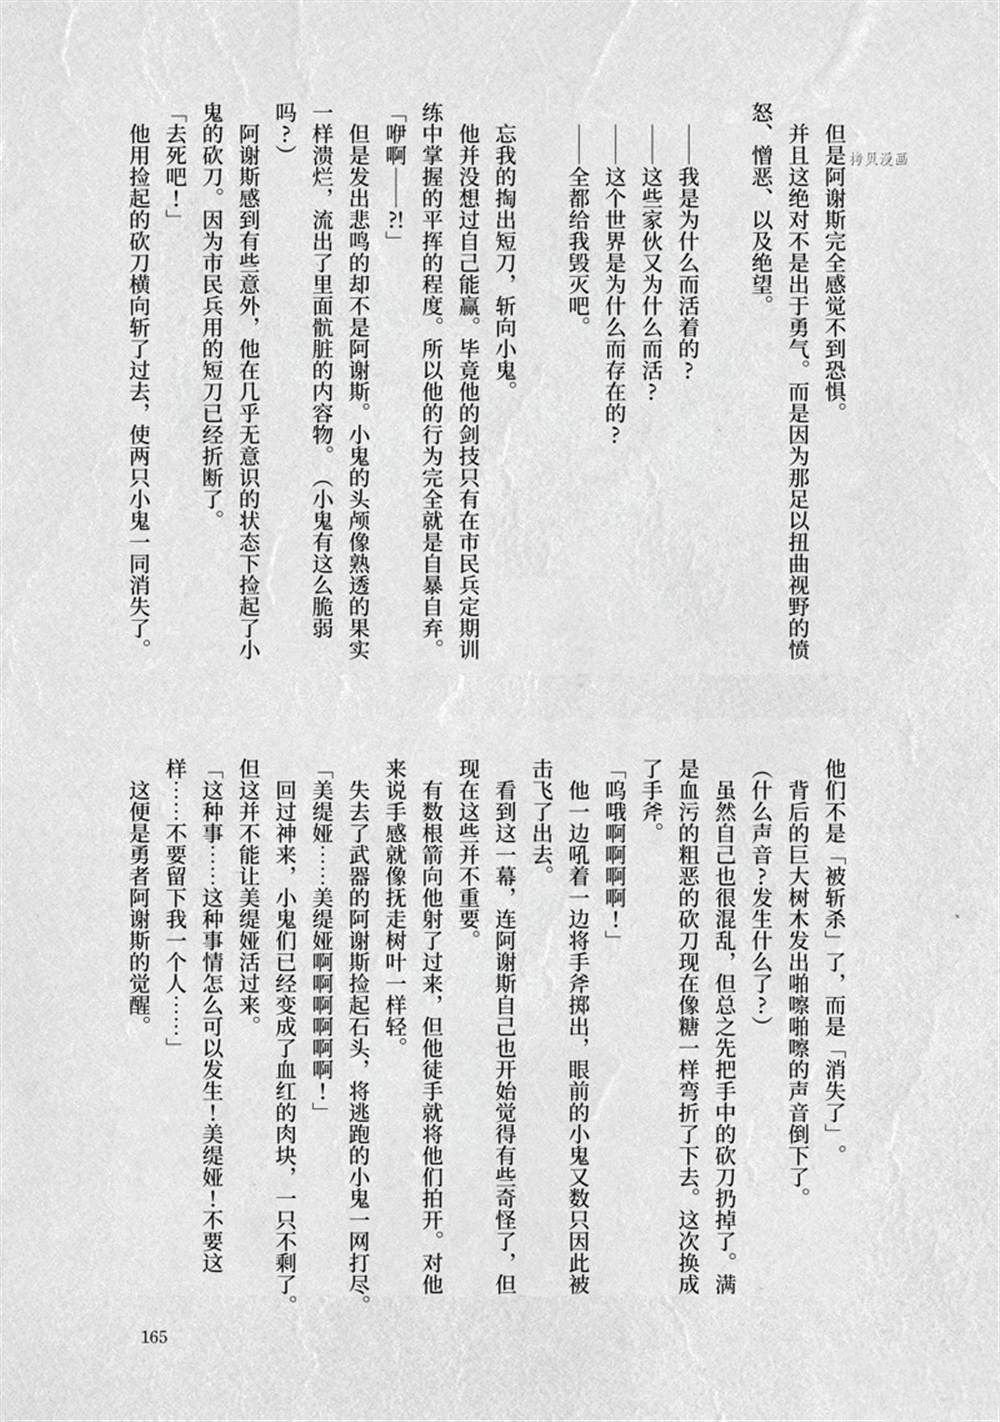 但是阿谢斯完全感觉不到恐惧。
并且这绝对不是出于勇气。而是因为那足以扭曲视野的愤
怒、憎恶、以及绝望。
——我是为什么而活着的?
——这些家伙又为什么而活?
——这个世界是为什么而存在的?
——全都给我毁灭吧。
忘我的掏出短刀，斩向小鬼。
他并没想过自己能赢。毕竟他的剑技只有在市民兵定期训
练中掌握的平挥的程度。所以他的行为完全就是自暴自弃。
「咿啊——?!」
但是发出悲鸣的却不是阿谢斯。小鬼的头颅像熟透的果实
一样溃烂，流出了里面骯脏的内容物。（小鬼有这么脆弱
吗?）
阿谢斯感到有些意外，他在几乎无意识的状态下捡起了小
鬼的砍刀。因为市民兵用的短刀已经折断了。
「去死吧!」
他用捡起的砍刀横向斩了过去，使两只小鬼一同消失了。
他们不是「被斩杀」了，而是「消失了」。
背后的巨大树木发出啪嚓啪嚓的声音倒下了。
（什么声音?发生什么了?）
虽然自己也很混乱，但总之先把手中的砍刀扔掉了。满
是血污的粗恶的砍刀现在像糖一样弯折了下去。这次换成
了手斧。
「呜哦啊啊啊啊!」
他一边吼着一边将手斧掷出，眼前的小鬼又数只因此被
击飞了出去。
看到这一幕，连阿谢斯自己也开始觉得有些奇怪了，但
现在这些并不重要。
有数根箭向他射了过来，但他徒手就将他们拍开。对他
来说手感就像抚走树叶一样轻。
失去了武器的阿谢斯捡起石头，将逃跑的小鬼一网打尽。
「美缇娅……美缇娅啊啊啊啊啊啊!」
回过神来，小鬼们已经变成了血红的肉块，一只不剩了。
但这并不能让美缇娅活过来。
「这种事……这种事情怎么可以发生!美缇娅!不要这
样……不要留下我一个人……」
这便是勇者阿谢斯的觉醒。
165
拷贝漫画